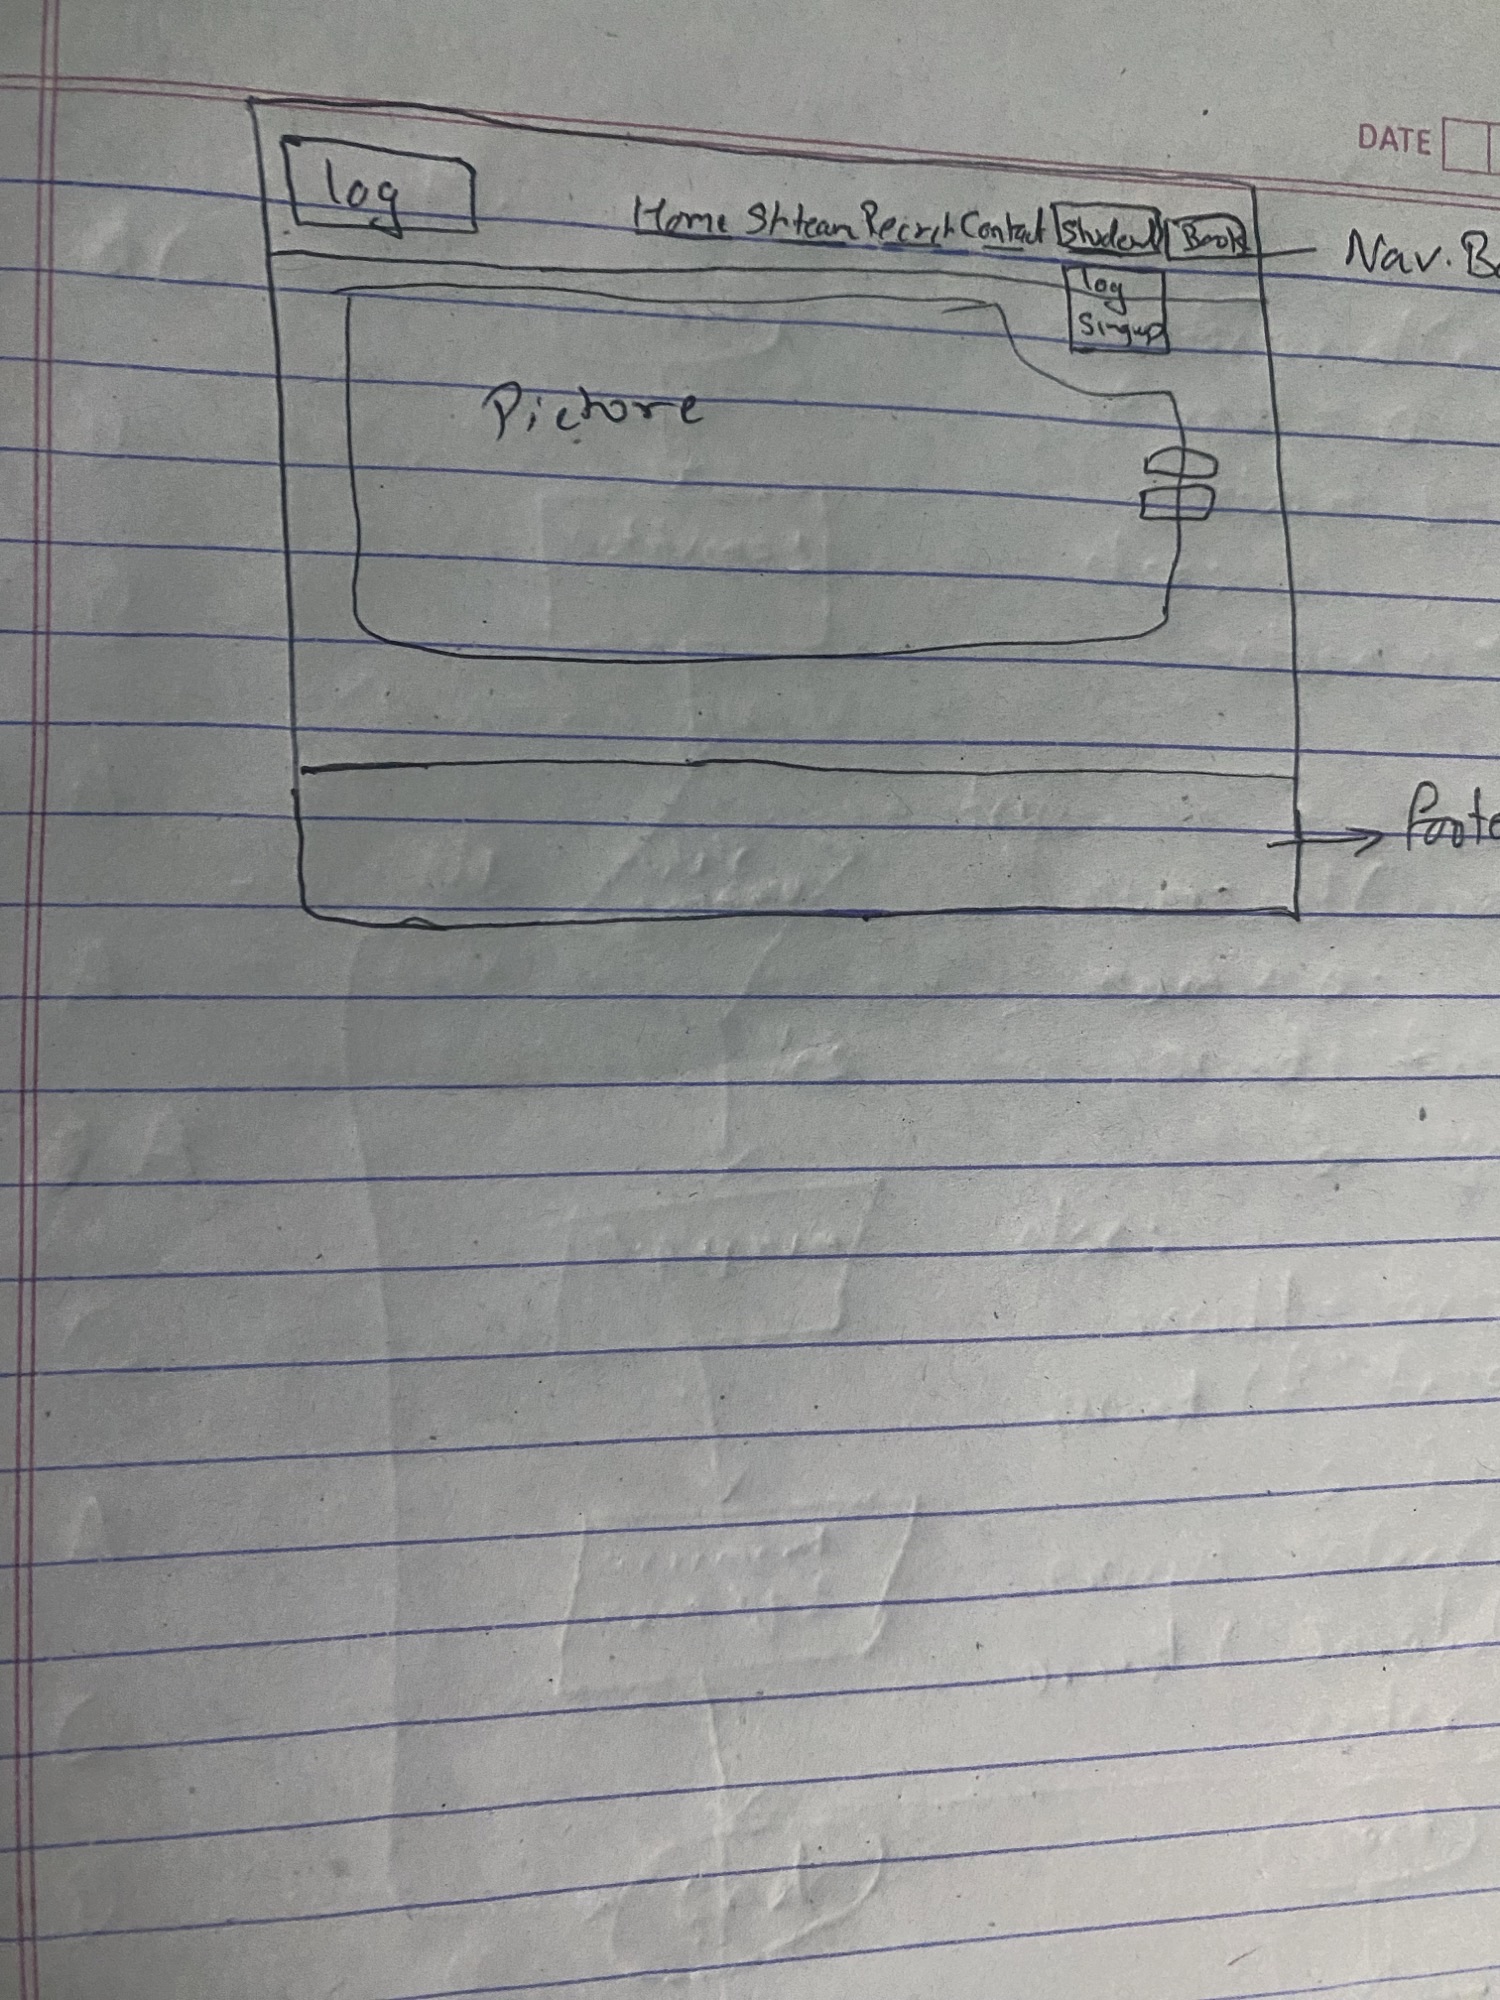 DATE
log
Home Shteam Recrit Contact Student Book
Nav. Ba
log
Singup
Pictore
Foote